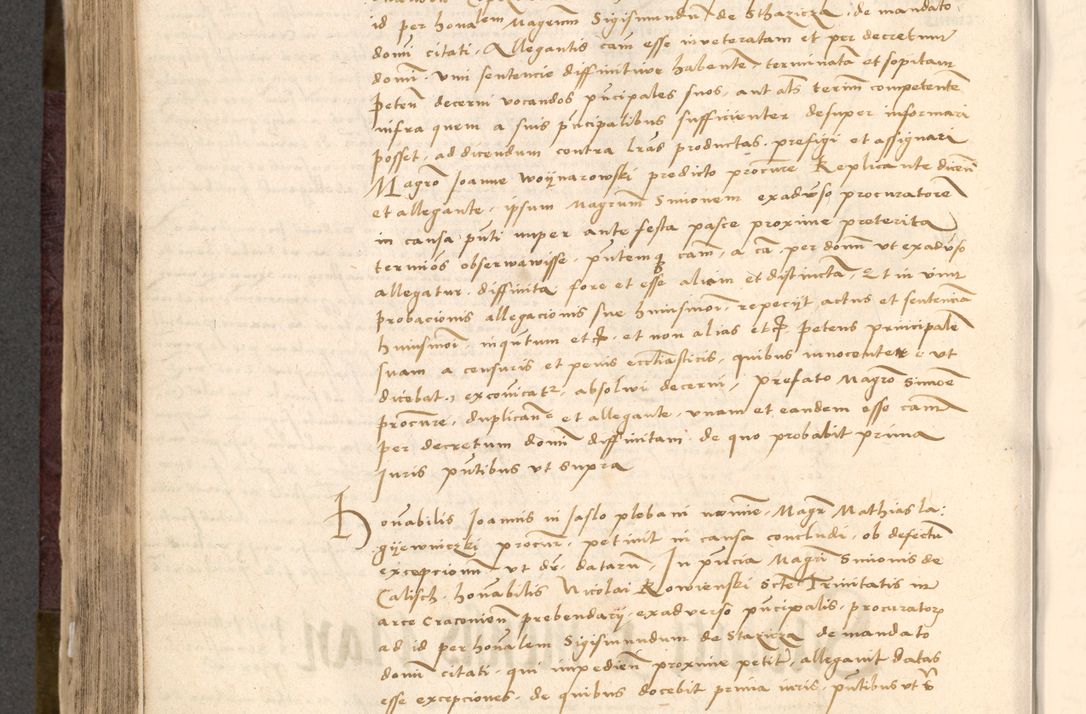 id per ho(n)alem Magrum Sigismundum de Stharicza, de mandato
domi citati, Allegantis cam esse inveteratam et per decretum
domi vim sentencie diffinitive habentem, terminata et sopitam
Peten decerni vocandos pncipales suos, aut als termi competente
infra quem a suis pncipalibus sufficienter desuper informari
posset, ad dicendum contra lras productas, prefigi et assignari
Magro Joanne Woynarowski predicto procure Replicante dicen
et allegante, ipsum Magrum Simonem exadvso procuratore
in causa pnti nuper ante festa pasce proxime preterita
termios observavisse, pntemq cam, a ca per domi ut exadvso
allegatur, diffinita fore et esse aliam et distincta, Et in vim
probacionis allegacionis sue huiusmoi, repeciit actus et sentencia
huiusmoi, inqntum et, et non alias et Petens principale
suam a censuris et penis ecclasticis, quibus innocenter, ut
dicebat, excoicatr, absolvi decerni, prefato Magro Simoe
procure, duplican et allegante, unam et eandem esse cam
per decretum domi diffinitam, de quo probabit prima
iuris pntibus ut supra
Honabilis Joannis in Jaslo plebani noine, Magr Mathias La:
gyewniczki procur, petivit in causa concludi, ob defectu
excepcionum ut dr datarum, In pncia Magri Simonis de
Calisch, honabilis Nicolai Kowienski Scte Trinitatis in
arce Cracovien prebendarii, exadverso pncipalis, procuratoris
ad id per honalem Sigismundum de Staricza de mandato
domi citati, qui impedien proxime petit, allegavit datas
esse excepciones, de quibus docebit prima iuris, pntibus ut s